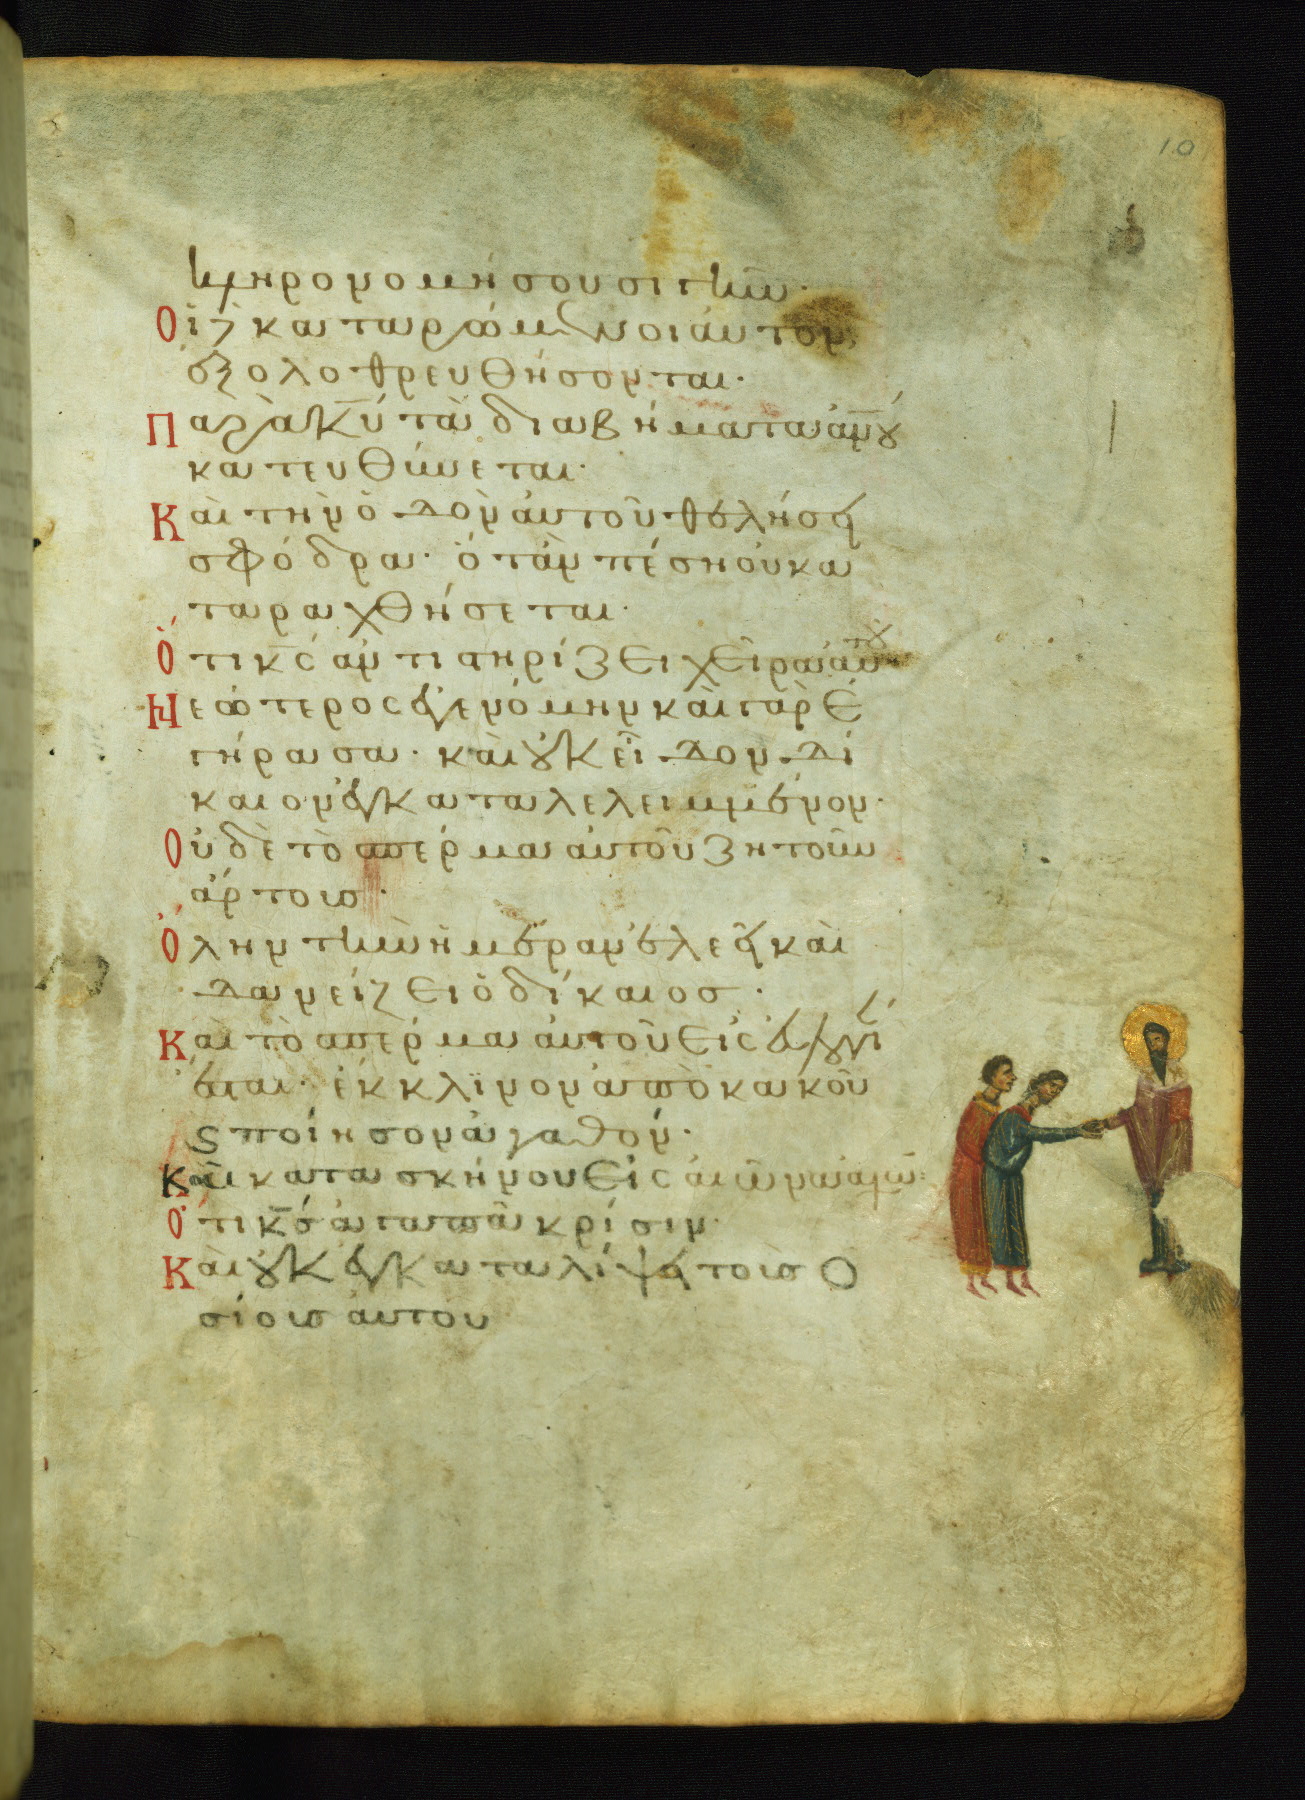 10
κληρονομήσουσι γῆν·
Οἱ δὲ καταρώμενοι αὐτὸν
ἐξολοθρευθήσονται·
Παρὰ κ̅υ̅ τὰ διαβήματα ἀν̅ο̅υ̅
κατευθύνεται·
Καὶ τὴν ὁδὸν αὐτοῦ θελήσει
σφόδρα· ὅταν πέσῃ οὐ κα
ταραχθήσεται·
Ὅτι κ̅ς̅ ἀντιστηρίζει χεῖρα αὐτοῦ·
Νεώτερος ἐγενόμην καὶ γὰρ ἐ
γήρασα· καὶ οὐκ εἶδον δί
καιον ἐγκαταλελειμμένον·
Οὐδὲ τὸ σπέρμα αὐτοῦ ζητοῦν
ἄρτοις·
Ὅλην τὴν ἡμέραν ἐλεεῖ καὶ
δανείζει ὁ δίκαιος·
Καὶ τὸ σπέρμα αὐτοῦ εἰς εὐλογί
ἔσται· ἔκκλινον ἀπὸ κακοῦ
ϛ ποίησον ἀγαθόν·
Καὶ κατασκήνου εἰς αἰῶνα αἰῶν·
Ὅτι κ̅ς̅ ἀγαπᾶ κρίσιν·
Καὶ οὐκ ἐγκαταλίψει τοὺς ὁ
σίους αὐτοῦ